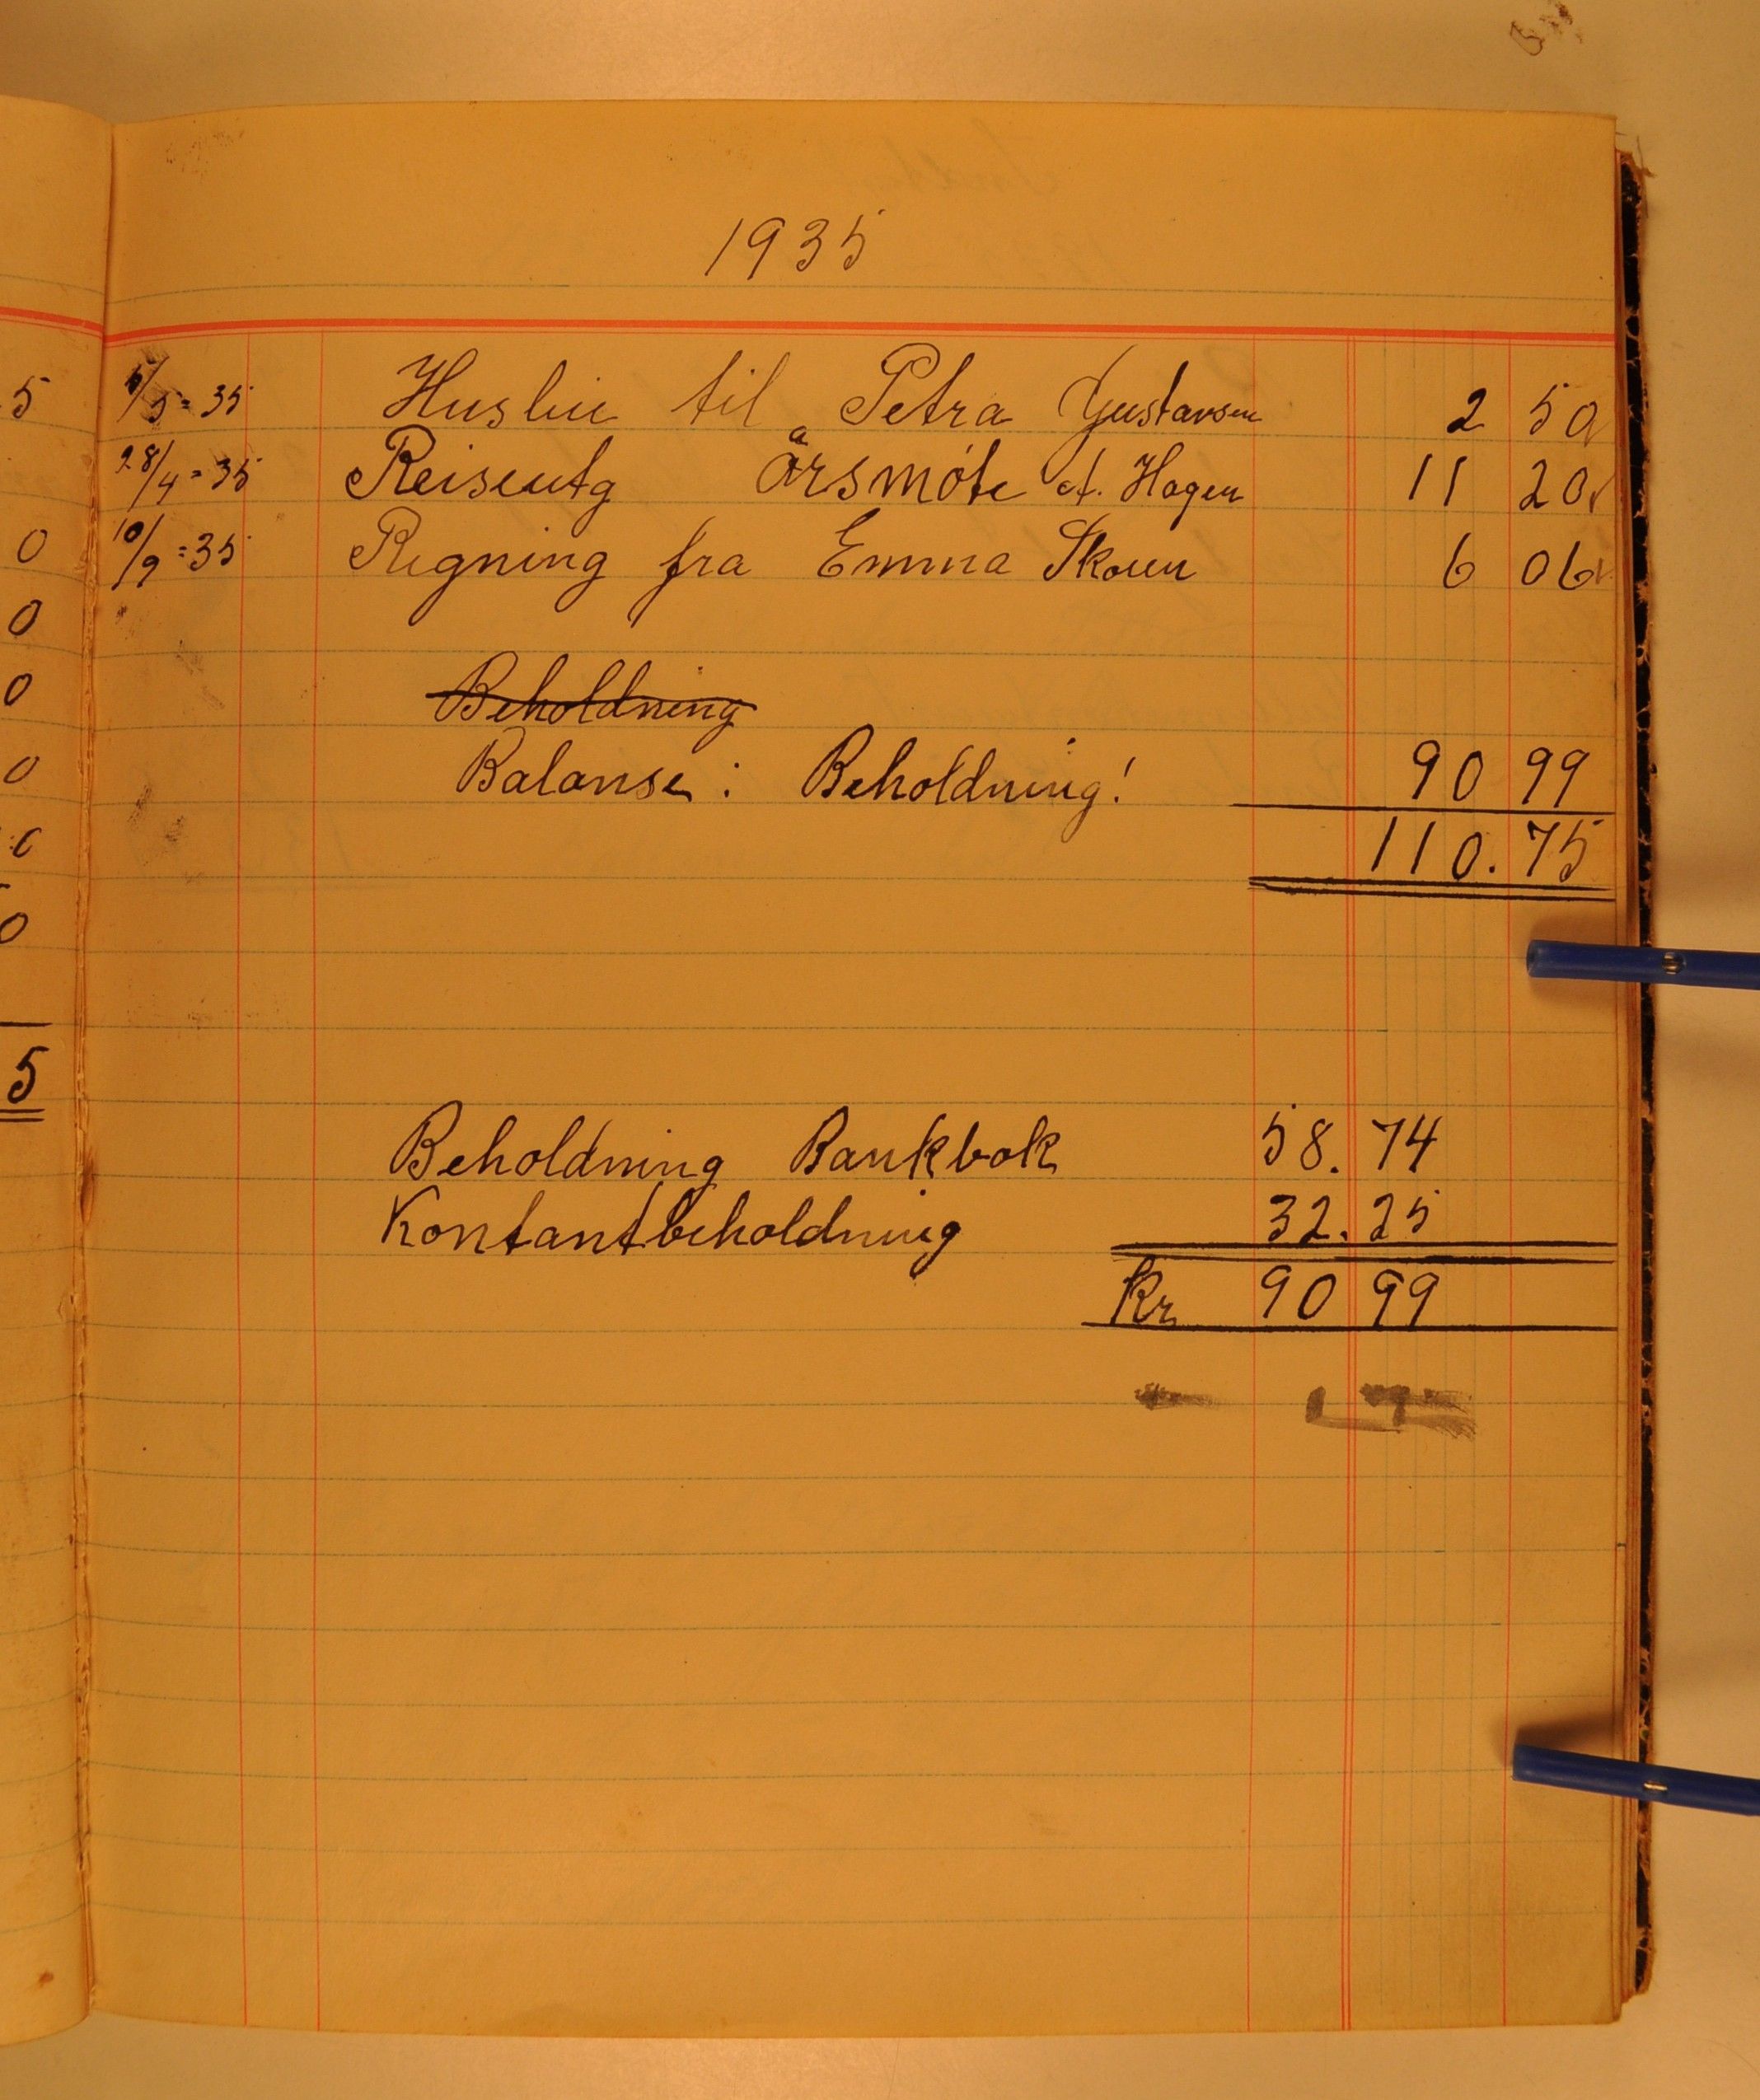 1935
5/5=35 Husleie til Petra Gustavsen 2 50
28/4=35 Reiseutg årsmøte A. Hagen 11 20
10/9=35 Regning fra Emma Skouen 6 06
Beholdning
Balanse: Beholdning! 90 99
110.75
Beholdning Bankbok 58.74
Kontantbeholdning 32.25
Kr 90 99
5
0
0
0
0
0
5